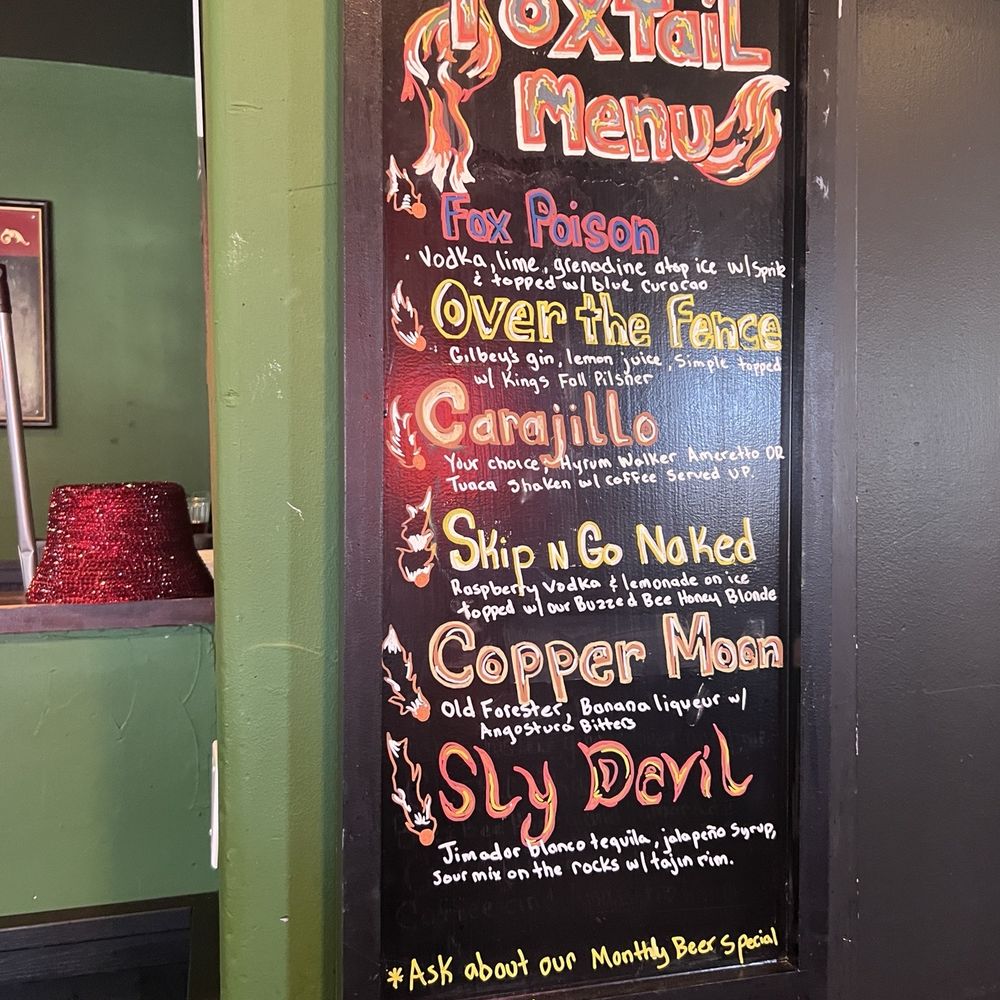 Foxtail
Menu
Fox Poison
· Vodka, lime, grenadine atop ice w/Sprite
& topped w/ blue curacao
Over the Fence
Gilbey's gin, lemon juice, Simple topped
w/ Kings Fall Pilsner
Carajillo
Your choice; Hyrum Walker Ameretto OR
Tuaca Shaken w/ coffee Served UP.
Skip N Go Naked
Raspberry Vodka & lemonade on ice
topped w/ our Buzzed Bee Honey Blonde
Copper Moon
Old Forester, Banana liqueur w/
Angostura Bitters
Sly Devil
Jimador blanco tequila, jalapeño syrup,
sour mix on the rocks w/ tajin rim.
*Ask about our Monthly Beer Special